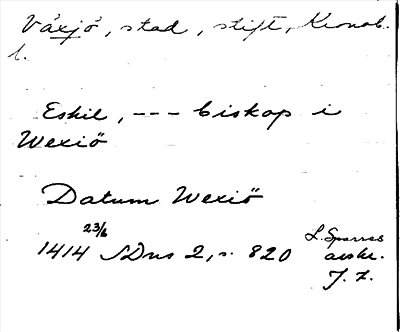 Växjö, stad, stift, Kronob.
l.
Eskil, --- biskop i
Wexiö
Datum Wexiö
1414 23/6 SDns 2, s. 820 L. Sparres
avskr.